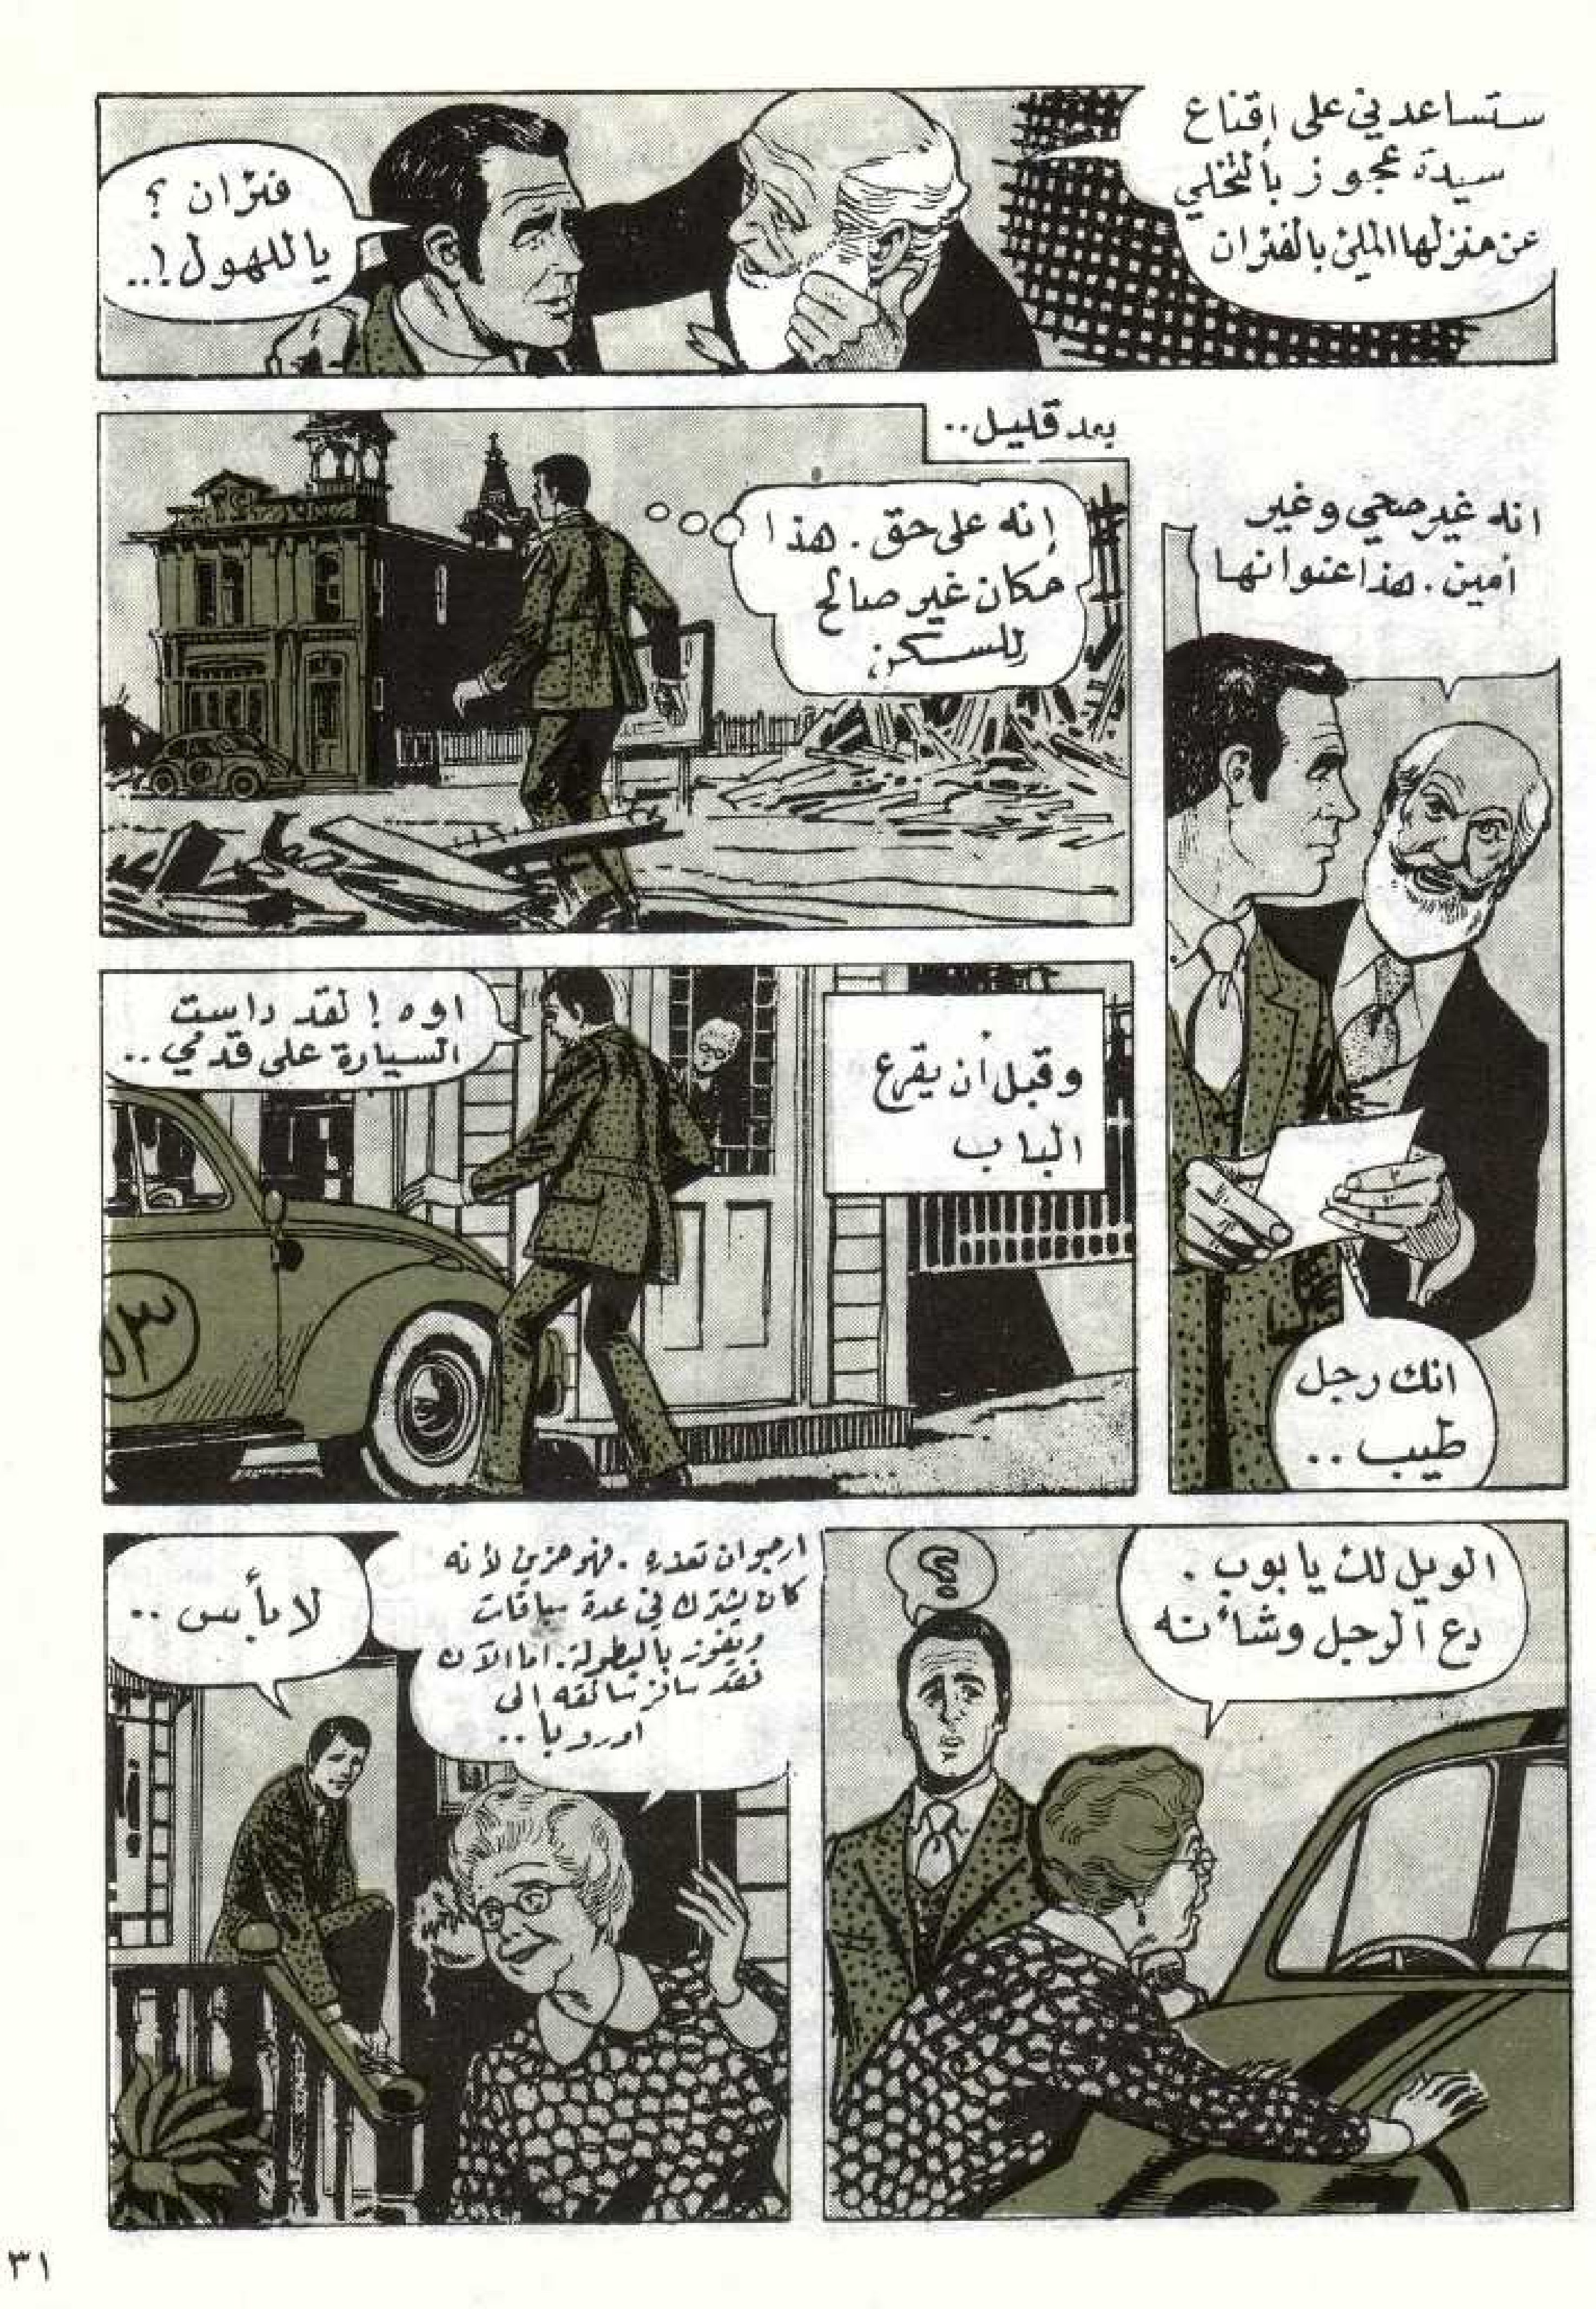 ستساعدني على إقناع
سيدة عجوز بالتخلي
عن منزلها المليئ بالفئران
فئران ؟
ياللهول !..
انه غير صحي وغير
أمين . هذا عنوانها
انك رجل
طيب ..
بعد قليل ..
إنه على حق . هذا
مكان غير صالح
للسكن
وقبل أن يقرع
الباب
اوه ! لقد داست
السيارة على قدمي ..
٥٣
الويل لك يا بوب .
دع الرجل وشأنه
؟
ارجو ان تعذره . فهو حزين لأنه
كان يشترك في عدة سباقات
ويفوز بالبطولة . اما الآن
فقد سافر سائقه الى
اوروبا ..
لا بأس ..
٣١